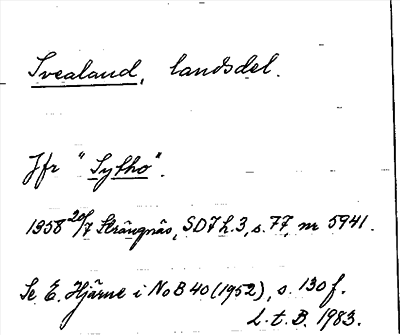 Svealand, landsdel.
Jfr "Sytho".
1358 20/7 Strängnäs, SD7 h.3, s. 77, nr 5941.
Se E. Hjärne i NoB 40 (1952), s. 130 f.
L.t.B. 1983.